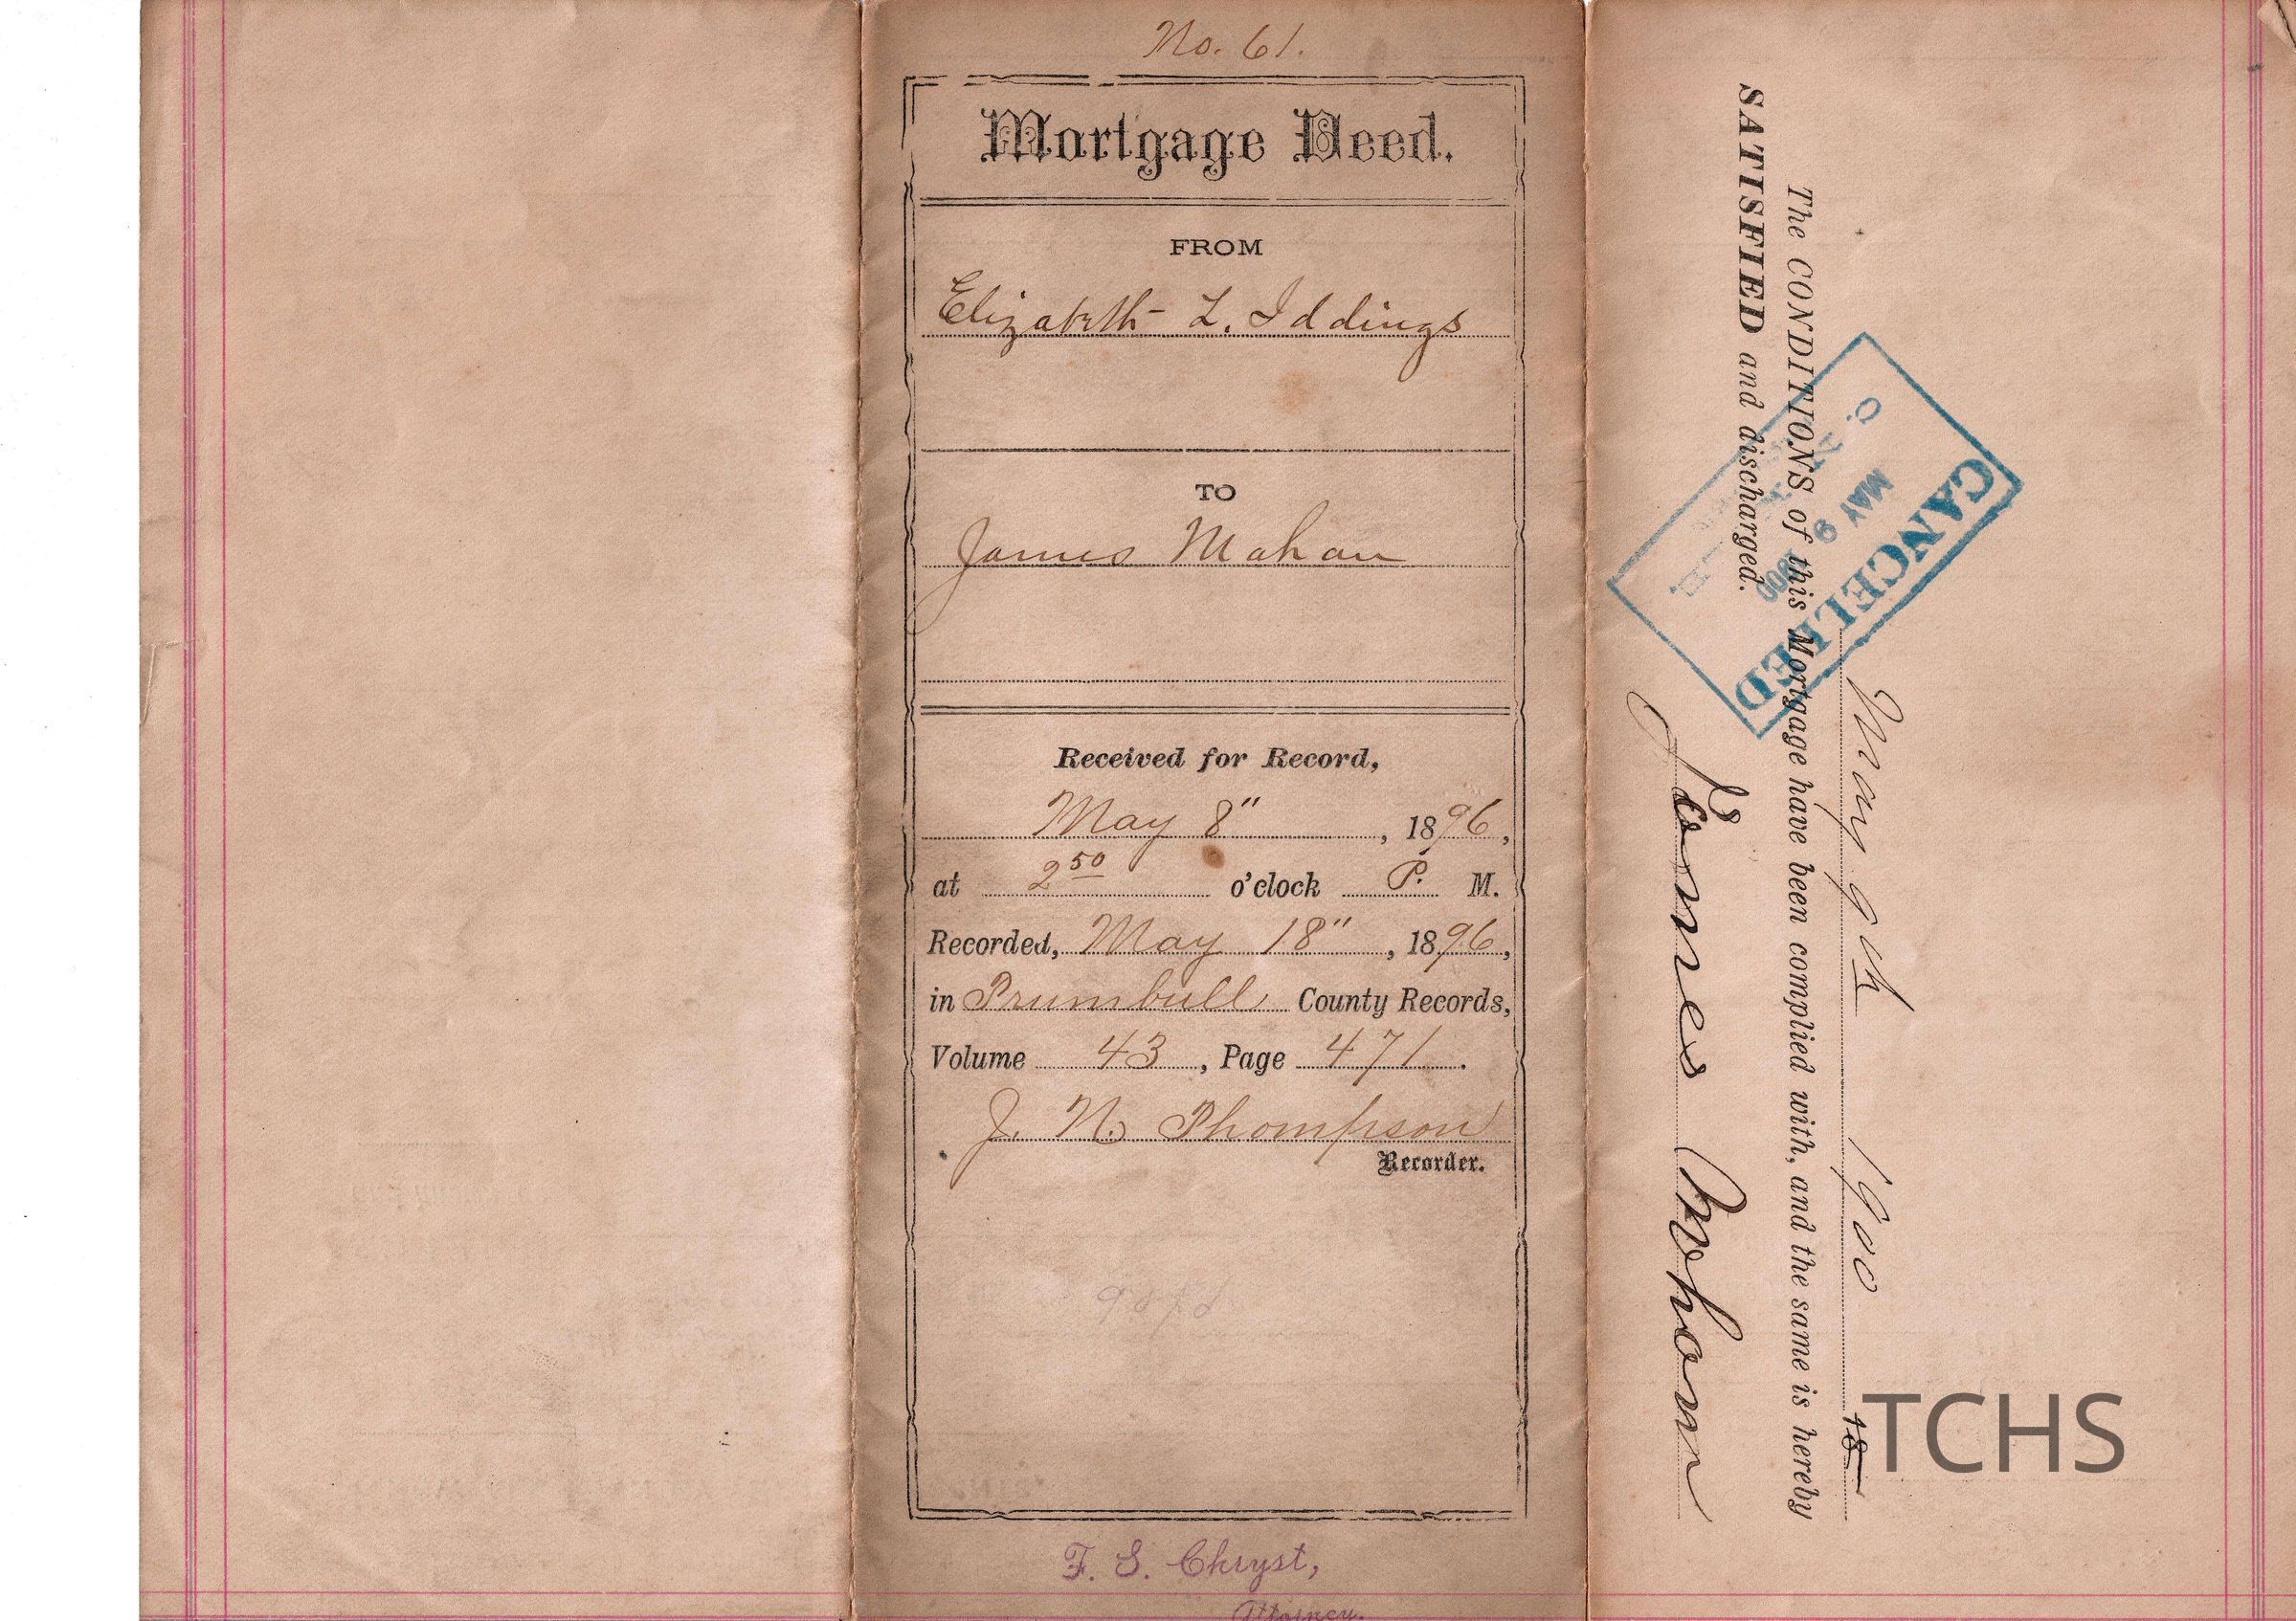 No. 61.
Mortgage Deed.
FROM
Elizabeth L. Iddings
TO
James Mahan
Received for Record,
May 8", 1896,
at 2 50 o'clock P. M.
Recorded, May 18", 1896,
in Trumbull County Records,
Volume 43, Page 471.
J. N. Thompson
Recorder.
F. S. Chryst,
Attorney.
May 9th 1900 18
The CONDITIONS of this Mortgage have been complied with, and the same is hereby
SATISFIED and discharged.
James Mahan
CANCELLED
MAY 9 1900
TCHS